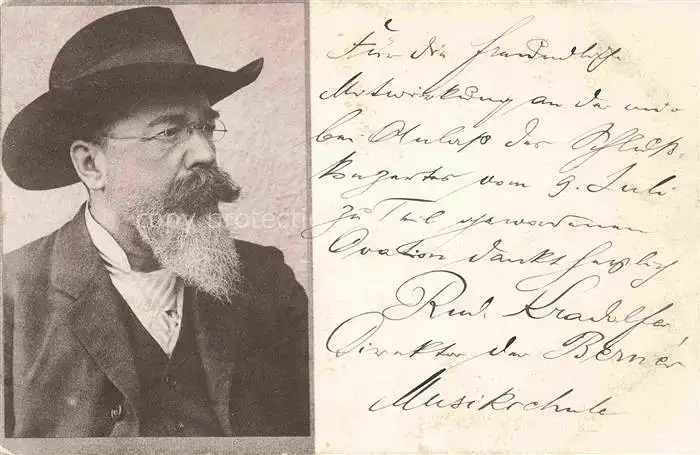 Für die freundliche
Mitwirkung an der mir
bei Anlaß des Schluß-
konzertes vom 9. Juli
zu Teil gewordenen
Ovation dankt herzlich
Rud. Kradolfer
Direktor der Berner
Musikschule
copy protection